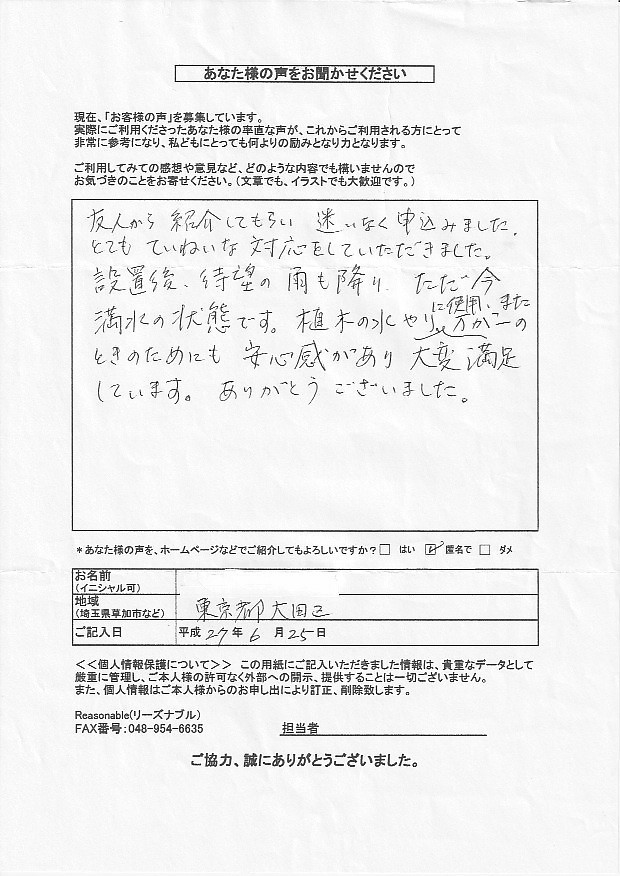 あなた様の声をお聞かせください
現在、「お客様の声」を募集しています。
実際にご利用くださったあなた様の率直な声が、これからご利用される方にとって
非常に参考になり、私どもにとっても何よりの励みとなり力となります。
ご利用してみての感想や意見など、どのような内容でも構いませんので
お気づきのことをお寄せください。（文章でも、イラストでも大歓迎です。）
友人から 紹介してもらい 迷いなく申込みました。
とても ていねいな 対応をしていただきました。
設置後、待望の 雨も降り ただ今
満水の状態です。植木の水やりに使用、また万が一の
ときのためにも 安心感があり 大変満足
しています。ありがとう ございました。
*あなた様の声を、ホームページなどでご紹介してもよろしいですか？□ はい ☑ 匿名で □ ダメ
お名前
(イニシャル可)
地域
(埼玉県草加市など) 東京都大田区
ご記入日 平成 27 年 6 月 25 日
<<個人情報保護について>> この用紙にご記入いただきました情報は、貴重なデータとして
厳重に管理し、ご本人様の許可なく外部への開示、提供することは一切ございません。
また、個人情報はご本人様からのお申し出により訂正、削除致します。
Reasonable(リーズナブル)
FAX番号:048-954-6635 担当者
ご協力、誠にありがとうございました。